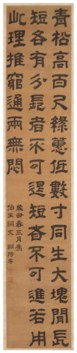 青松高百尺綠蕙低數寸同生大塊間長
短各有分長者不可退短者不可進若用
此理推窮通兩無悶